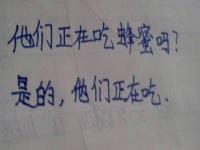 他们正在吃蜂蜜吗?
是的,他们正在吃.